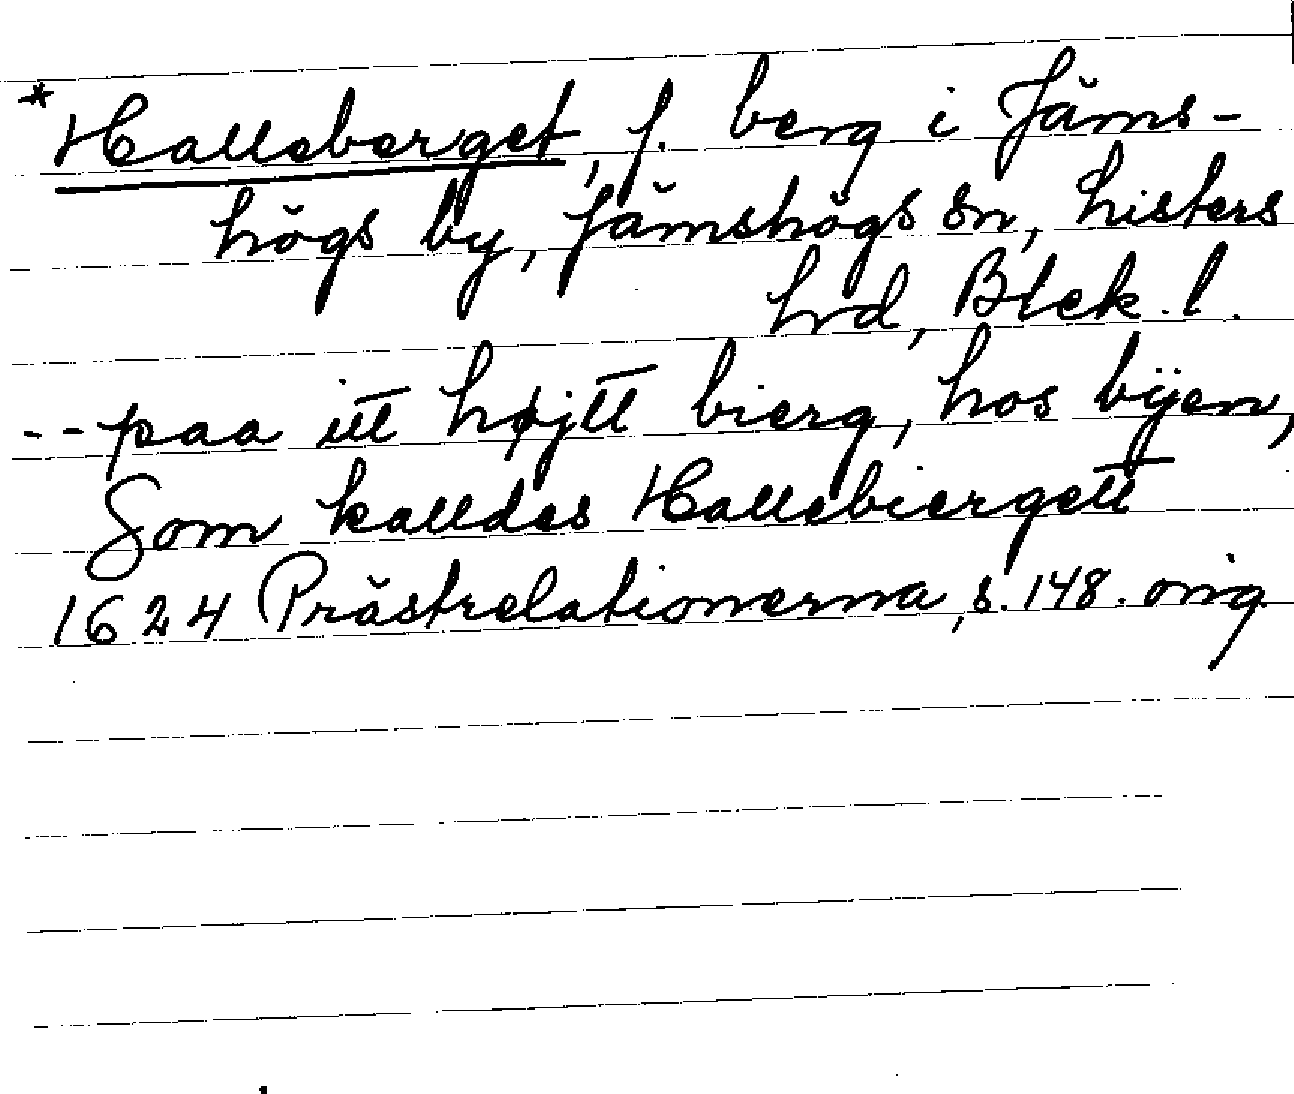 *Halleberget, f. berg i Jäms-
högs by, Jämshögs sn, Listers
hrd, Blek. l.
-- paa itt højtt bierg, hos bÿen,
Som kalldes Hallebiergett
1624 Prästrelationerna, s. 148. orig